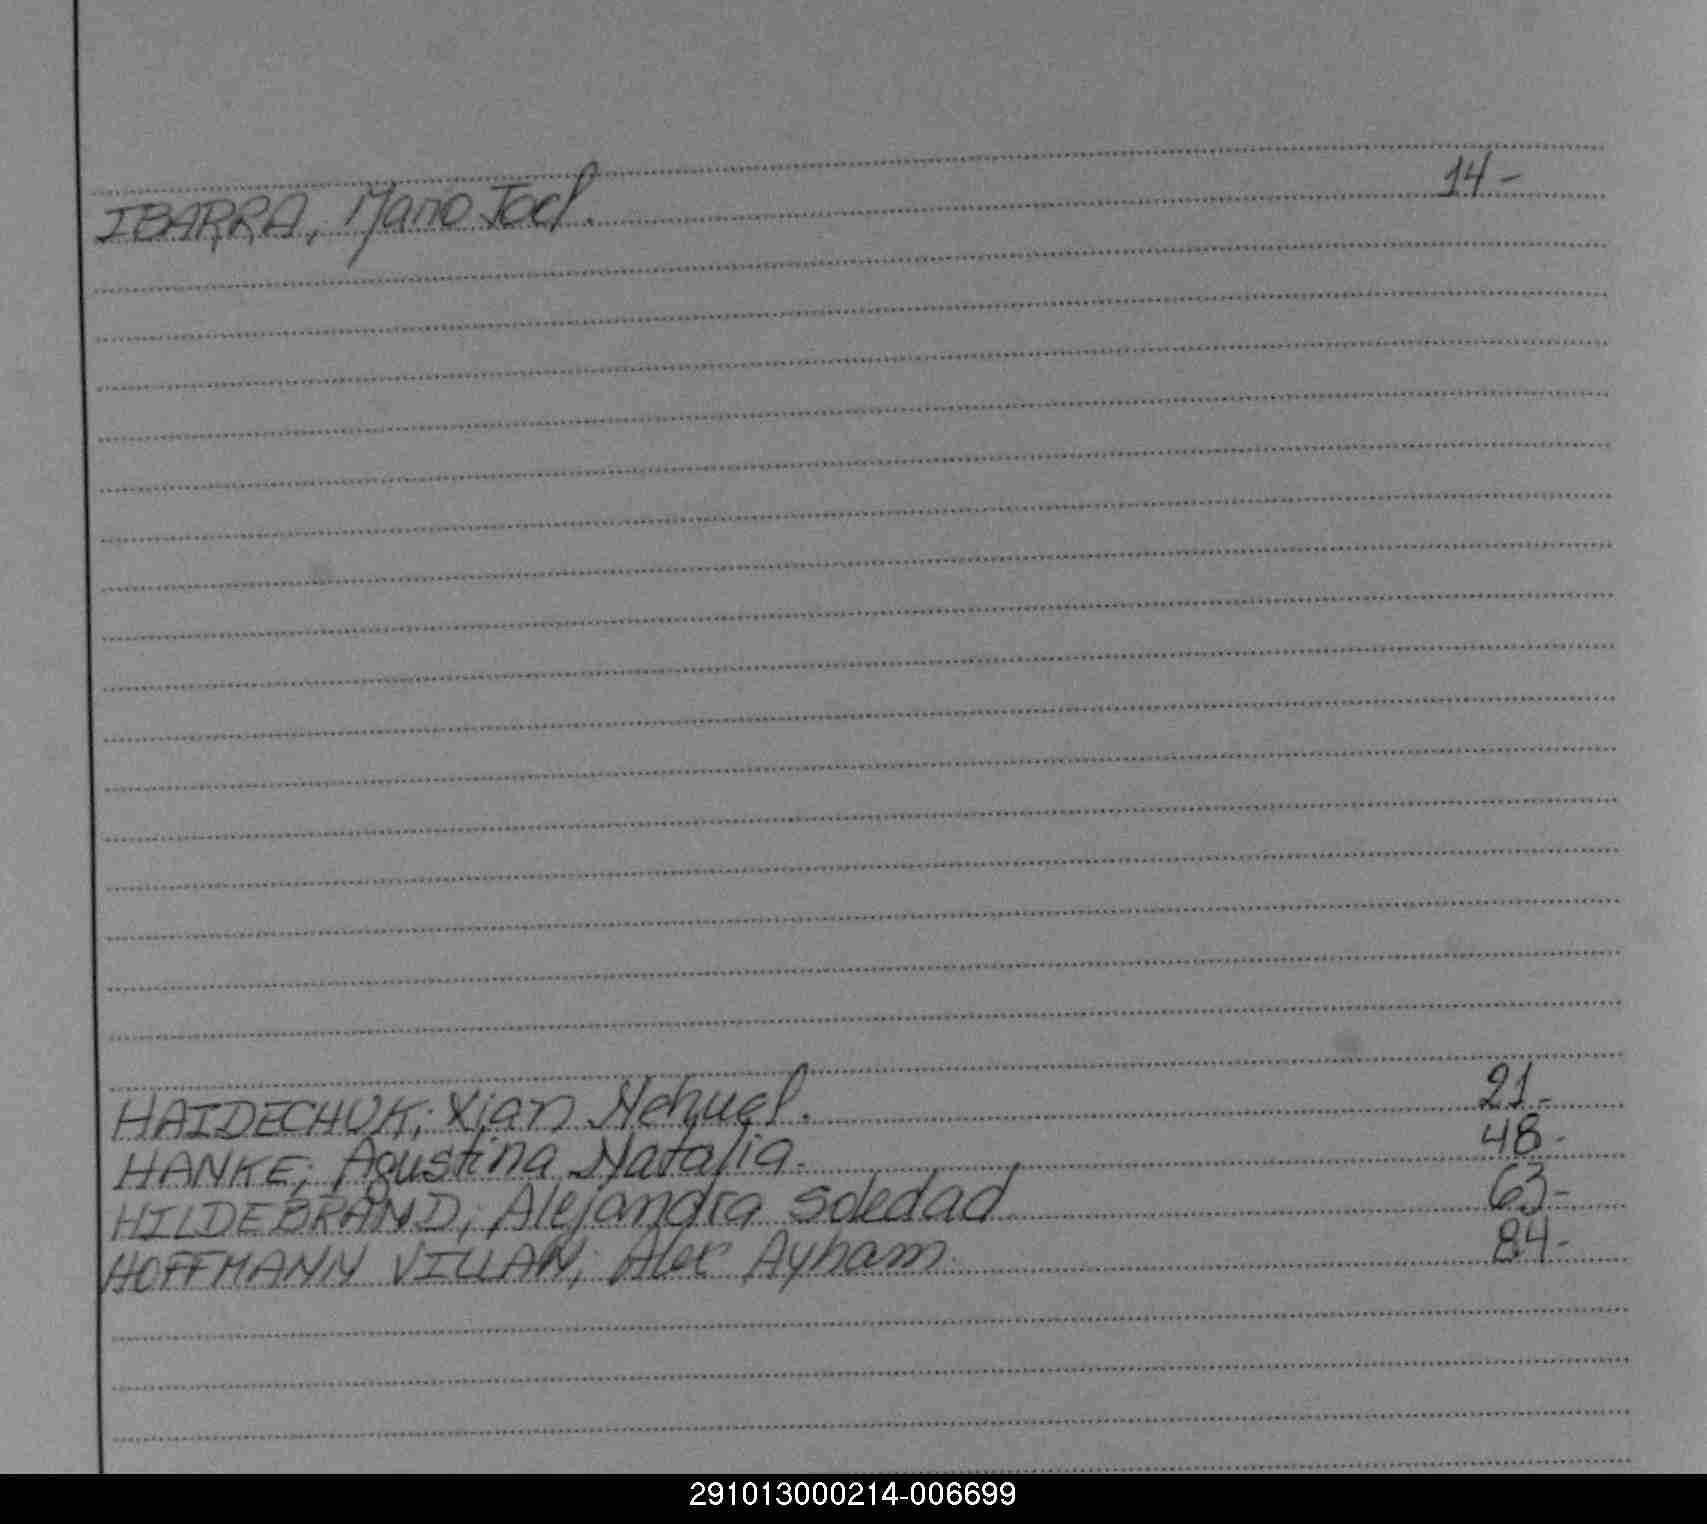 IBARRA, Mario Joel. 14-
HAIDECHUK; Xian Nehuel. 21-
HANKE; Agustina Natalia. 48-
HILDEBRAND; Alejandra Soledad 63-
HOFFMANN VILLAN; Alex Ayham. 84-
291013000214-006699